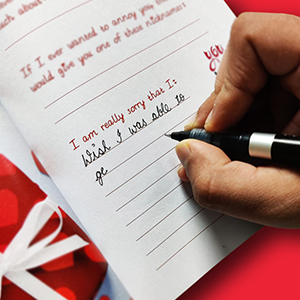 each about
If I ever wanted to annoy you, I
would give you one of these nicknames:
you
I am really sorry that I:
Wish I was able to
ge